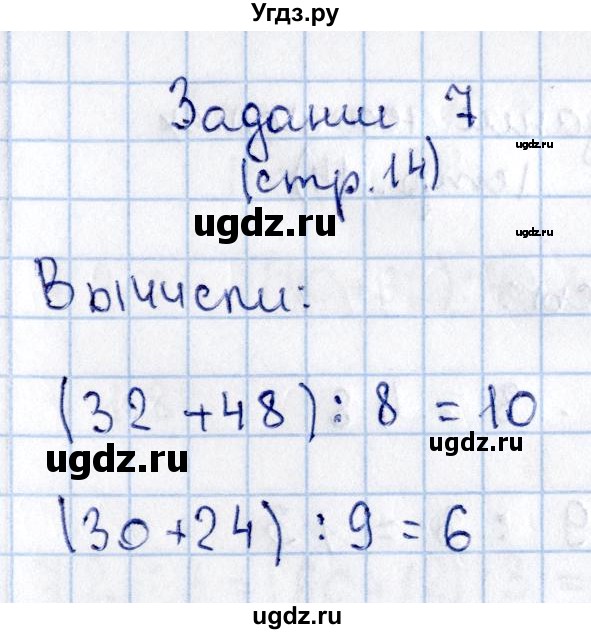 Угдз.ру
Задании 7
ugdz.ru
(стр. 14)
ugdz.ru
ugdz.ru
Вычисли:
(32 + 48) : 8 = 10
ugdz.ru
ugdz.ru
(30 + 24) : 9 = 6
ugdz.ru